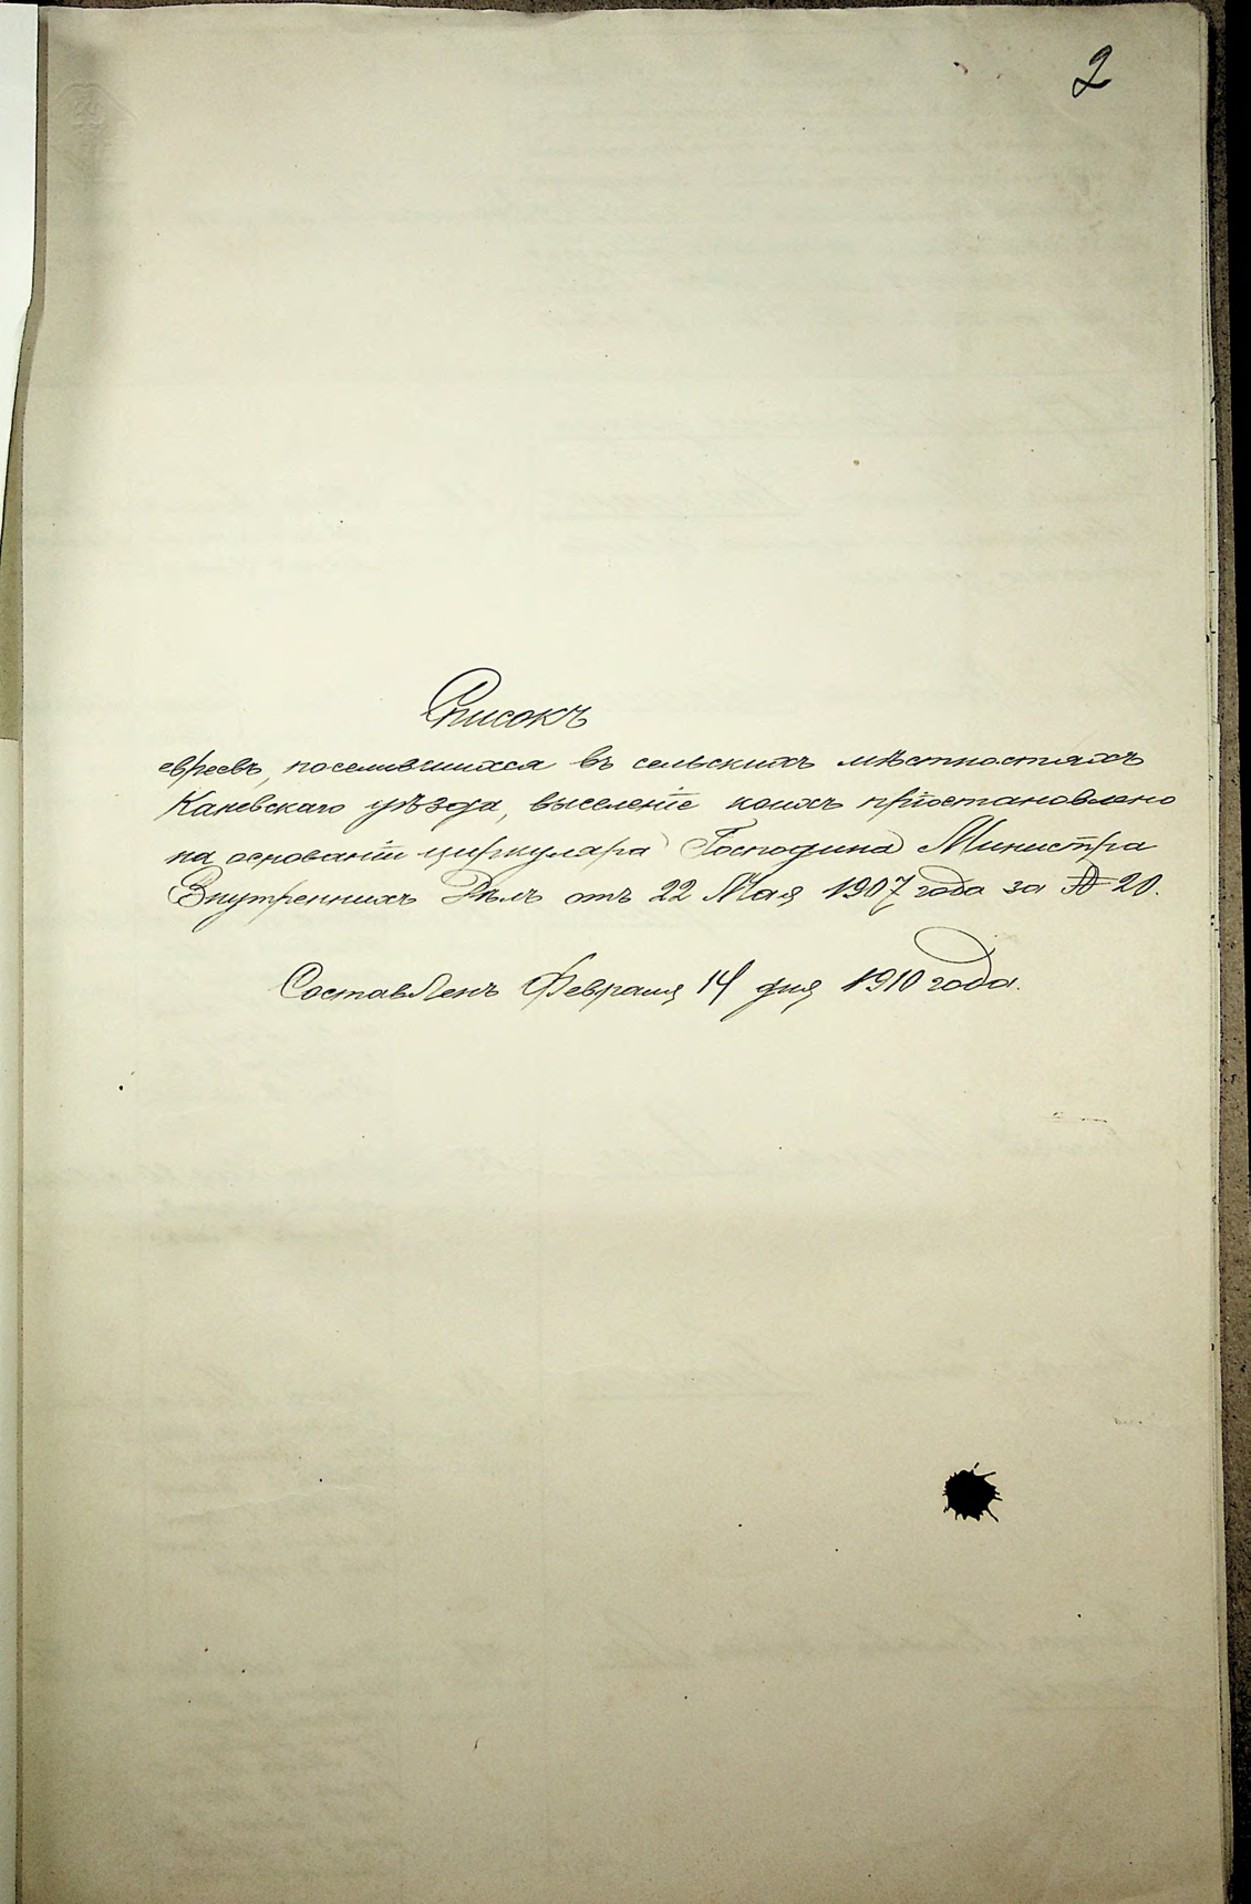 2
Списокъ
евреевъ, поселившихся въ сельскихъ мѣстностяхъ
Каневскаго уѣзда, выселеніе коихъ пріостановлено
на основаніи циркуляра Господина Министра
Внутреннихъ Дѣлъ отъ 22 Мая 1907 года за № 20.
Составленъ Февраля 14 дня 1910 года.